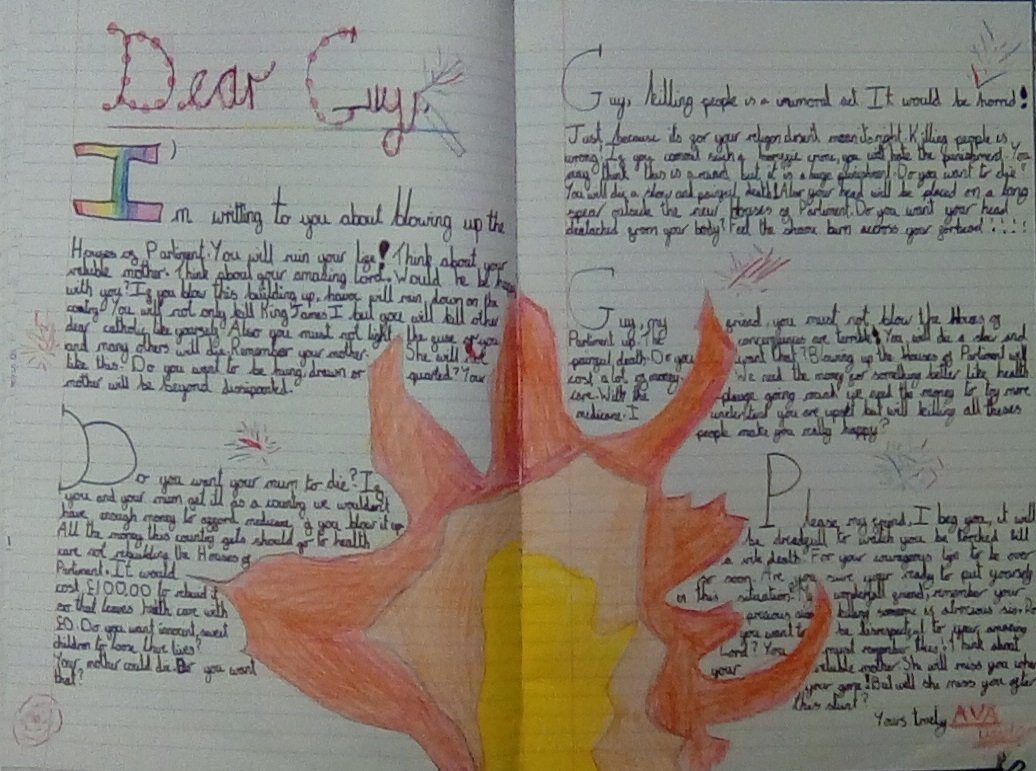 Dear Guy,
I'm writting to you about blowing up the
Houses of Parliment. You will ruin your life! Think about your
relible mother. Think about your amazing Lord. Would he be happy
with you? If you blow this building up, havoc will rain down on the
country. You will not only kill King James I but you will kill other
dear catholic like yourself. Also you must not light the fuse or you
and many others will die. Remember your mother. She will not
like this. Do you want to be hung drawn or quarted? Your
mother will be beyond dissiponted.
Do you want your mum to die? If
you and your mum get ill as a country we wouldn't
have enough money to afford medicine if you blow it up.
All the money this country gets should go to health
care not rebuilding the Houses of
Parliment. It would
cost £100,00 to rebuid it
so that leaves health care with
£0. Do you want innocent, sweet
children to loose there lives?
Your mother could die. Do you want
that?
Guy, killing people is a unmoral act. It would be horrid!
Just because its for your religon doesn't mean its right. Killing people is
wrong! If you commit such a horrific crime, you will hate the punishment. You
may think this is a reward but it is a huge punishment. Do you want to die?
You will die a slow and painful death! Also your head will be placed on a long
spear outside the new Houses of Parliment. Do you want your head
deatached from your body? Feel the shame burn across your forhead
Guy, my friend, you must not blow the Houses of
Parliment up. The concequences are terrible! You will die a slow and
painful death. Do you want that? Blowing up the Houses of Parliment will
cost a lot of money. We need the money for something better like health
care. With the plauge going round we need the money to buy more
medicane. I understand you are upset but will killing all theses
people make you really happy?
Please my friend, I beg you, it will
be dreadfull to watch you be torched till
death. For your courageous life to be over
so soon. Are you sure your ready to put yourself
in this situation? My wonderfull friend, remember your
killing someone is atrocious sin.
you want to be disrespectful to your amazing
Lord? You must remember this! Think about
your relible mother. She will miss you when
your gone! But will she miss you after
this stunt?
Yours truely AVA